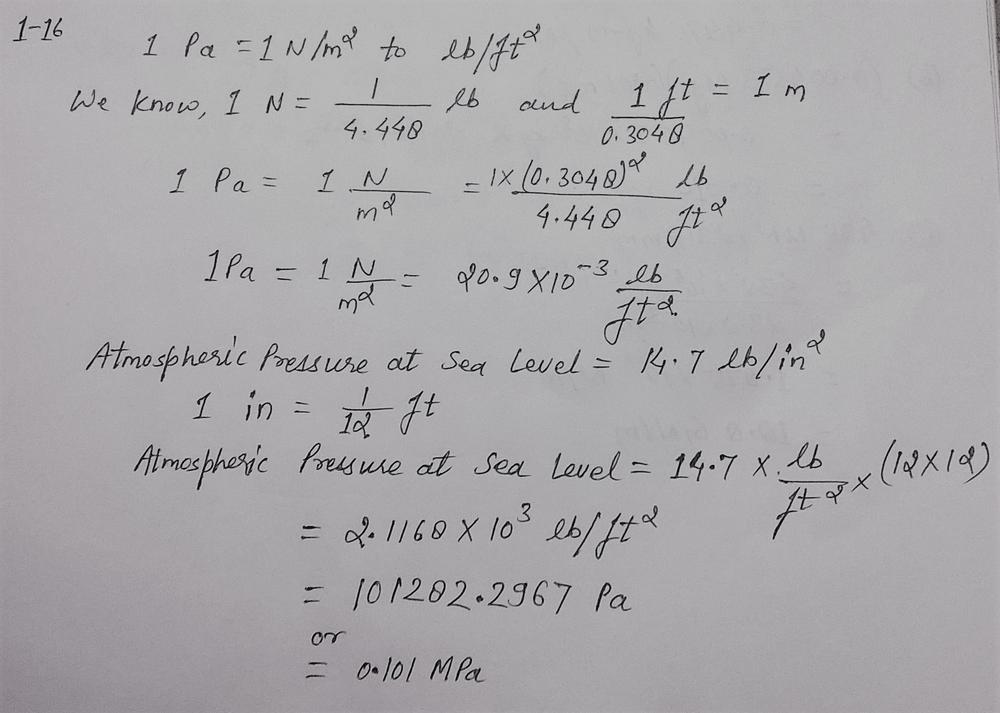 1-16
1 Pa = 1 N/m² to lb/ft²
We know, 1 N = 1/4.448 lb and 1/0.3048 ft = 1 m
1 Pa = 1 N/m² = 1×(0.3048)²/4.448 lb/ft²
1Pa = 1 N/m² = 20.9×10⁻³ lb/ft²
Atmospheric Pressure at Sea Level = 14.7 lb/in²
1 in = 1/12 ft
Atmospheric Pressure at Sea Level = 14.7 × lb/ft² × (12×12)
= 2.1168 × 10³ lb/ft²
= 101282.2967 Pa
or
= 0.101 MPa